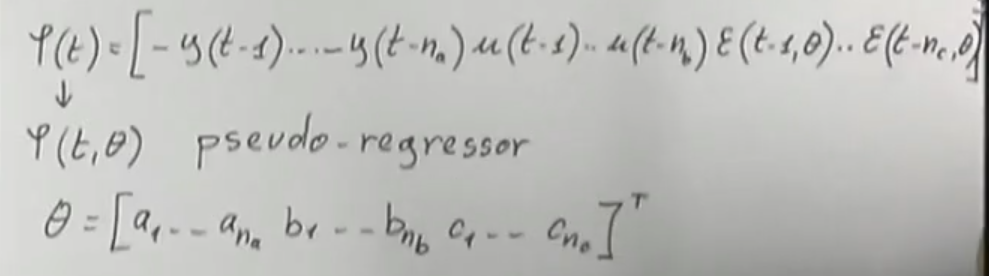 φ(t) = [ - y(t-1) ... - y(t-nₐ) u(t-1) .. u(t-n_b) ε(t-1,θ) .. ε(t-n_c,θ]
↓
φ(t,θ) pseudo-regressor
θ = [a₁ -- a_nₐ b₁ -- b_n_b c₁ -- c_n_c]ᵀ